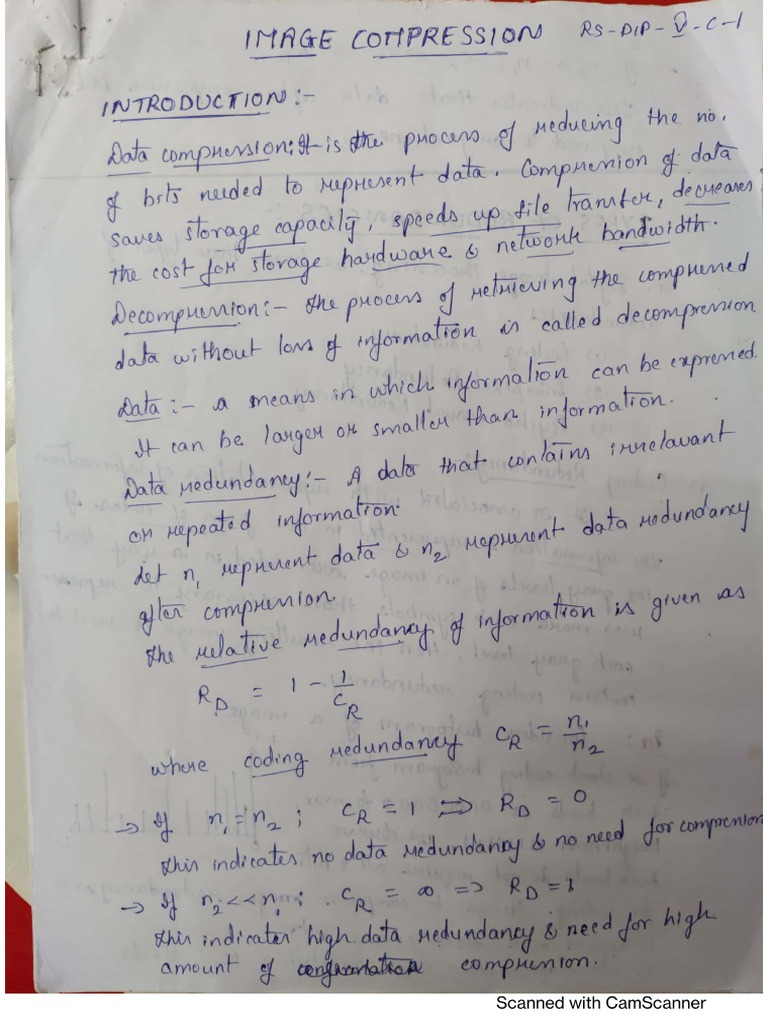 IMAGE COMPRESSION RS-DIP-V-C-1
INTRODUCTION:-
Data compression: It is the process of reducing the no.
of bits needed to represent data. Compression of data
saves storage capacity, speeds up file transfer, decreases
the cost for storage hardware & network bandwidth.
Decompression:- the process of retrieving the compressed
data without loss of information is called decompression
Data:- a means in which information can be expressed.
It can be larger or smaller than information.
Data redundancy:- A data that contains irrelavant
or repeated information.
Let n₁ represent data & n₂ represent data redundancy
after compression.
The relative redundancy of information is given as
R_D = 1 - 1/C_R
where coding redundancy C_R = n₁/n₂
→ If n₁ = n₂ ; C_R = 1 ⇒ R_D = 0
this indicates no data redundancy & no need for compression
→ If n₂ << n₁ ; C_R = ∞ ⇒ R_D = 1
this indicates high data redundancy & need for high
amount of compression.
Scanned with CamScanner